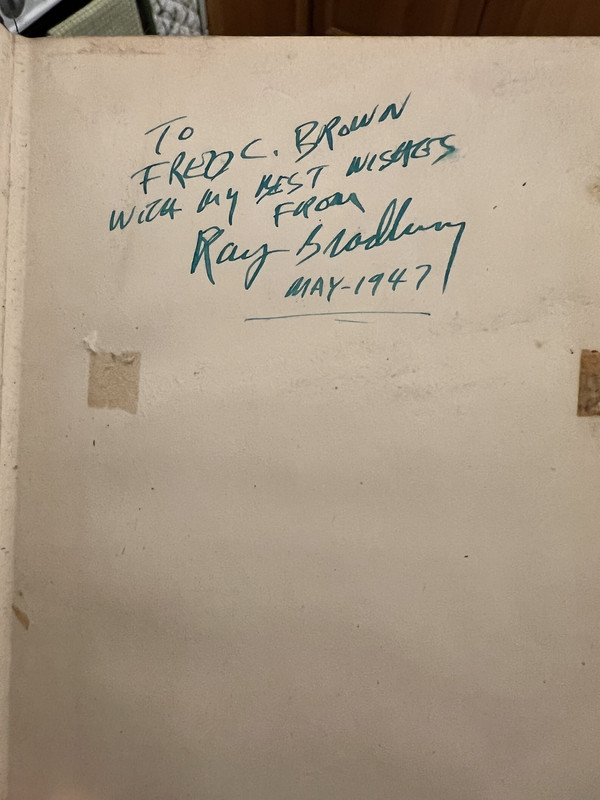 TO
FRED C. BROWN
WITH MY BEST WISHES
FROM
Ray Bradbury
MAY-1947